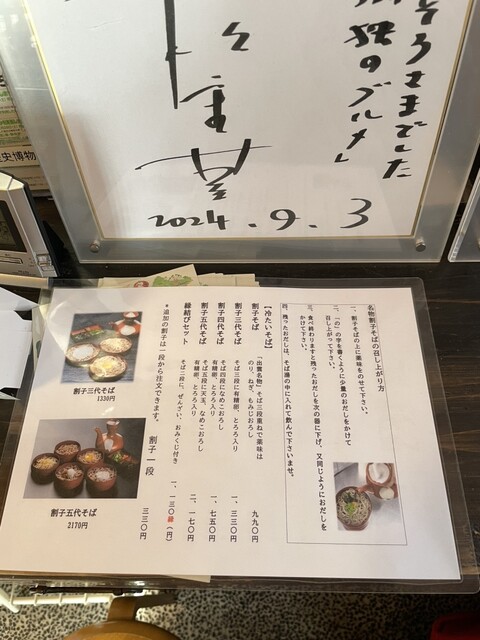 そうさまでした
独のグルメ」
2024.9.3
史博物
名物割子そばの召し上がり方
一、割子そばの上に薬味をのせて下さい。
二、「の」の字を書くように少量のおだしをかけて
召し上がって下さい。
三、食べ終わりますと残ったおだしを次の器に下げ、又同じようにおだしを
かけて下さい。
四、残ったおだしは、そば湯の中に入れて飲んで下さいませ。
【冷たいそば】
割子そば 「出雲名物」そば三段重ねで薬味は
のり、ねぎ、もみじおろし 九九〇円
割子三代そば そば三段に有精卵、とろろ入り 一、三三〇円
割子四代そば そば四段になめこおろし
有精卵、とろろ入り 一、七五〇円
割子五代そば そば五段に天玉、なめこおろし
有精卵、とろろ入り 二、一七〇円
縁結びセット そば三段に、ぜんざい、おみくじ付き 一、一三〇縁(円)
*追加の割子は一段から注文できます。 割子一段 三三〇円
割子三代そば
1330円
割子五代そば
2170円